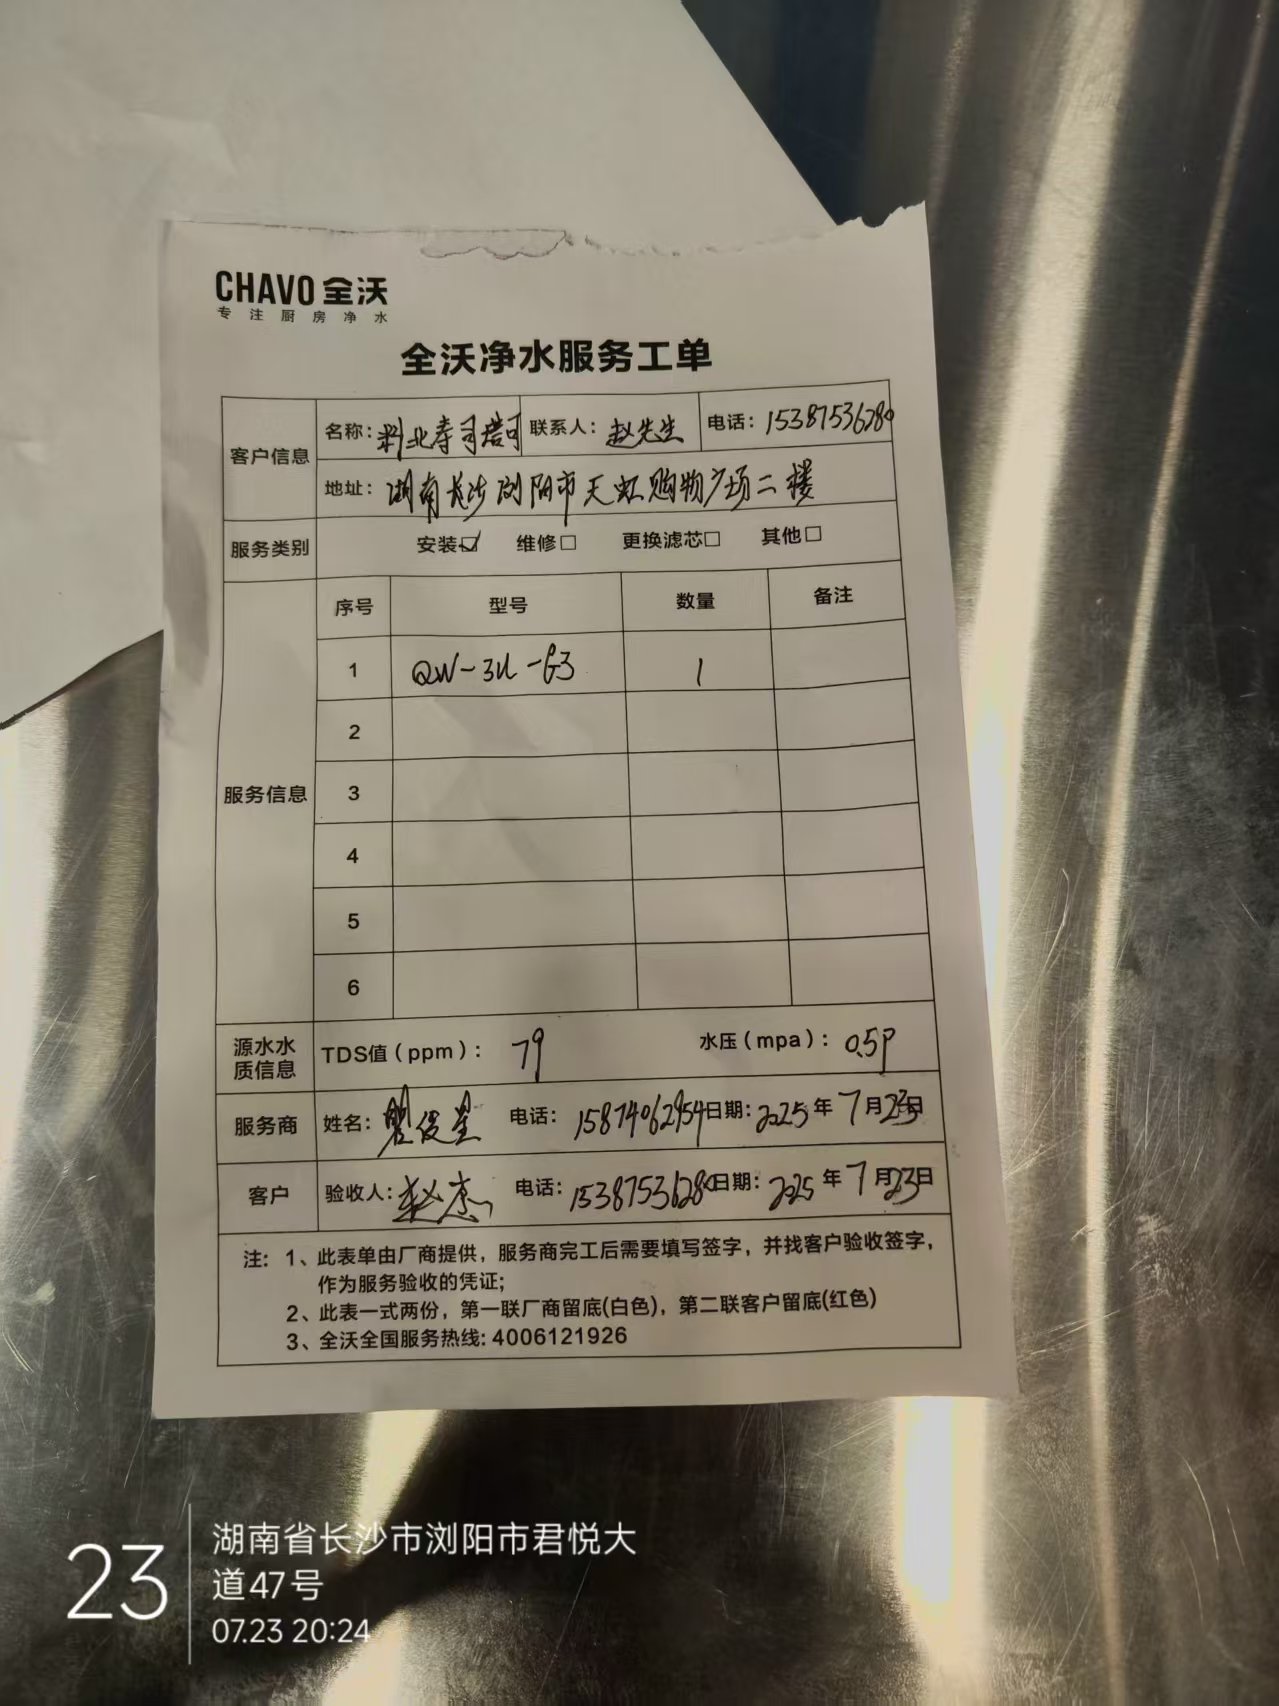 CHAVO 全沃
专注厨房净水
全沃净水服务工单
客户信息 名称: 料业寿司 联系人: 赵先生 电话: 15387536280
地址: 湖南长沙浏阳市天虹购物广场二楼
服务类别 安装☑ 维修□ 更换滤芯□ 其他□
服务信息 序号 型号 数量 备注
1 QW-3U-G3 1
2
3
4
5
6
源水水质信息 TDS值(ppm): 79 水压(mpa): 0.5P
服务商 姓名: 电话: 15874062954 日期: 2025年7月23日
客户 验收人: 电话: 15387536280 日期: 2025年7月23日
注: 1、此表单由厂商提供，服务商完工后需要填写签字，并找客户验收签字，
作为服务验收的凭证;
2、此表一式两份，第一联厂商留底(白色)，第二联客户留底(红色)
3、全沃全国服务热线: 4006121926
23
湖南省长沙市浏阳市君悦大
道47号
07.23 20:24